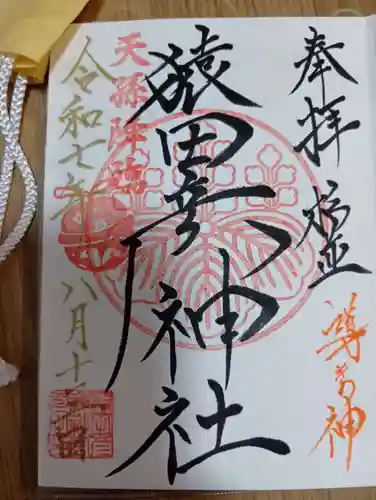 奉拝
導きの神
猿田彦神社
天孫降臨
令和七年
八月十